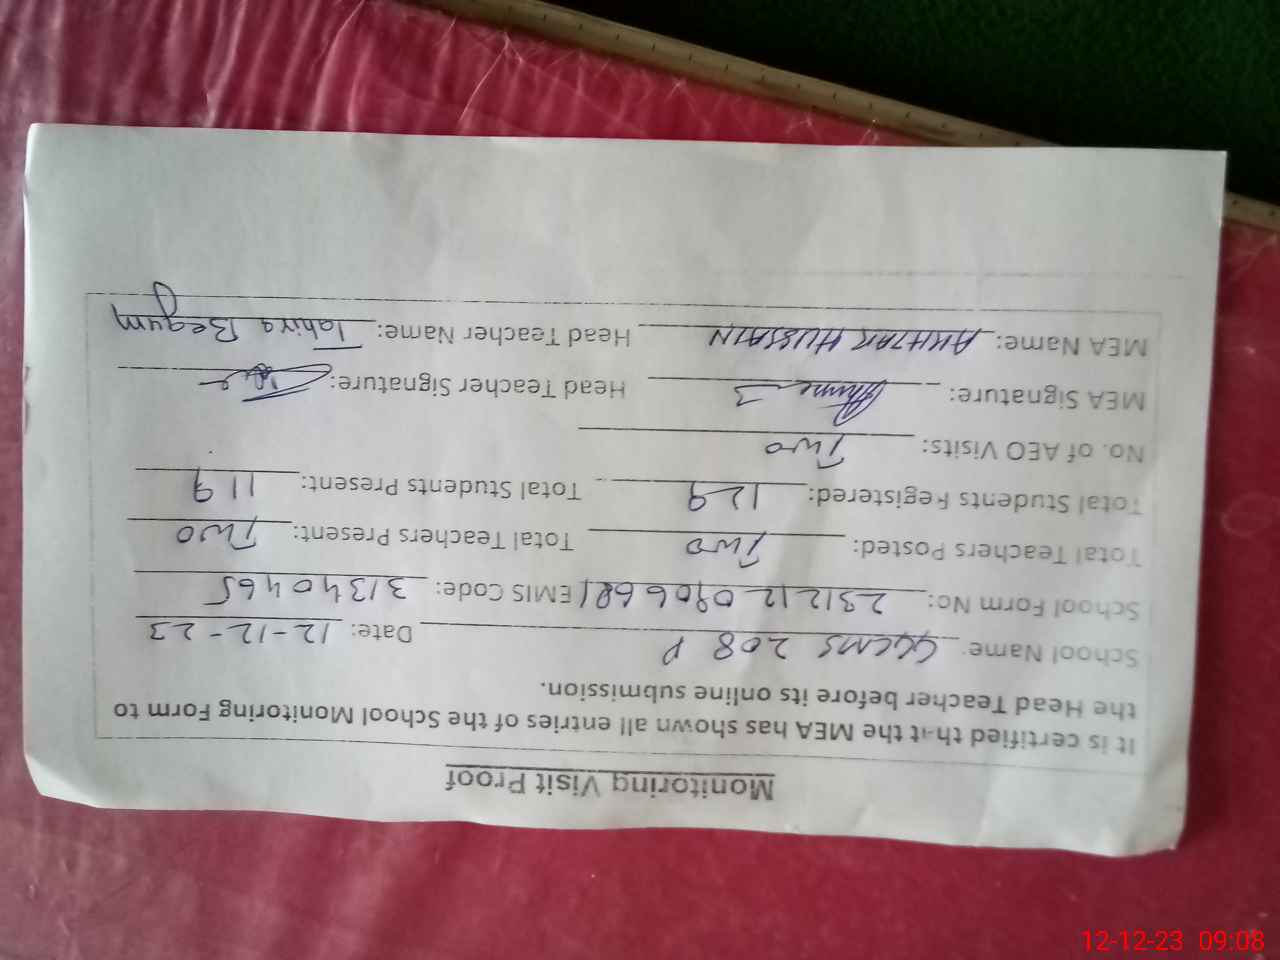 Monitoring Visit Proof
It is certified that the MEA has shown all entries of the School Monitoring Form to
the Head Teacher before its online submission.
School Name: GGCMS 208 P Date: 12-12-23
School Form No: 23121209066 EMIS Code: 31340465
Total Teachers Posted: Two Total Teachers Present: Two
Total Students Registered: 129 Total Students Present: 119
No. of AEO Visits: Two
MEA Signature: Head Teacher Signature:
MEA Name: AKHTAR HUSSAIN Head Teacher Name: Tahira Begum
12-12-23 09:08